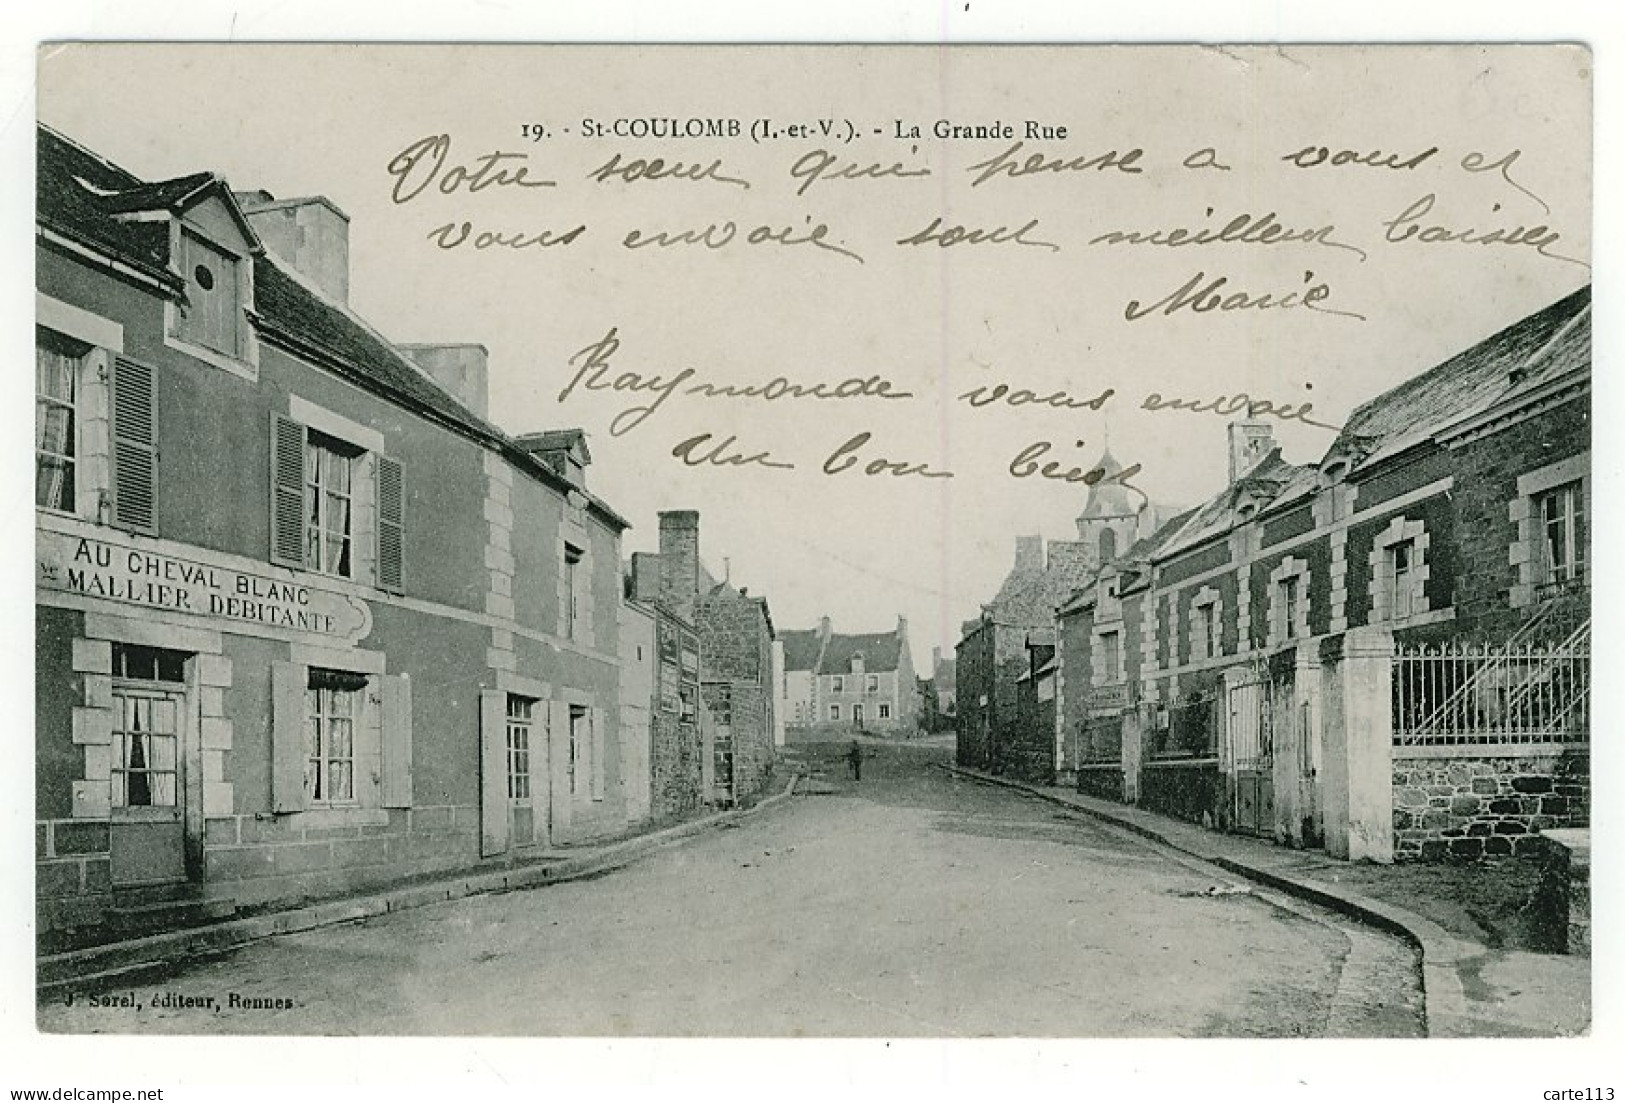 19. - St-COULOMB (I.-et-V.). - La Grande Rue
Votre sœur qui pense a vous et
vous envoie sont meilleur baiser
Marie
Raymonde vous envoie
Un bon bise
AU CHEVAL BLANC
Vve MALLIER DEBITANTE
J. Sorel, éditeur, Rennes
delcampe.net
carte113